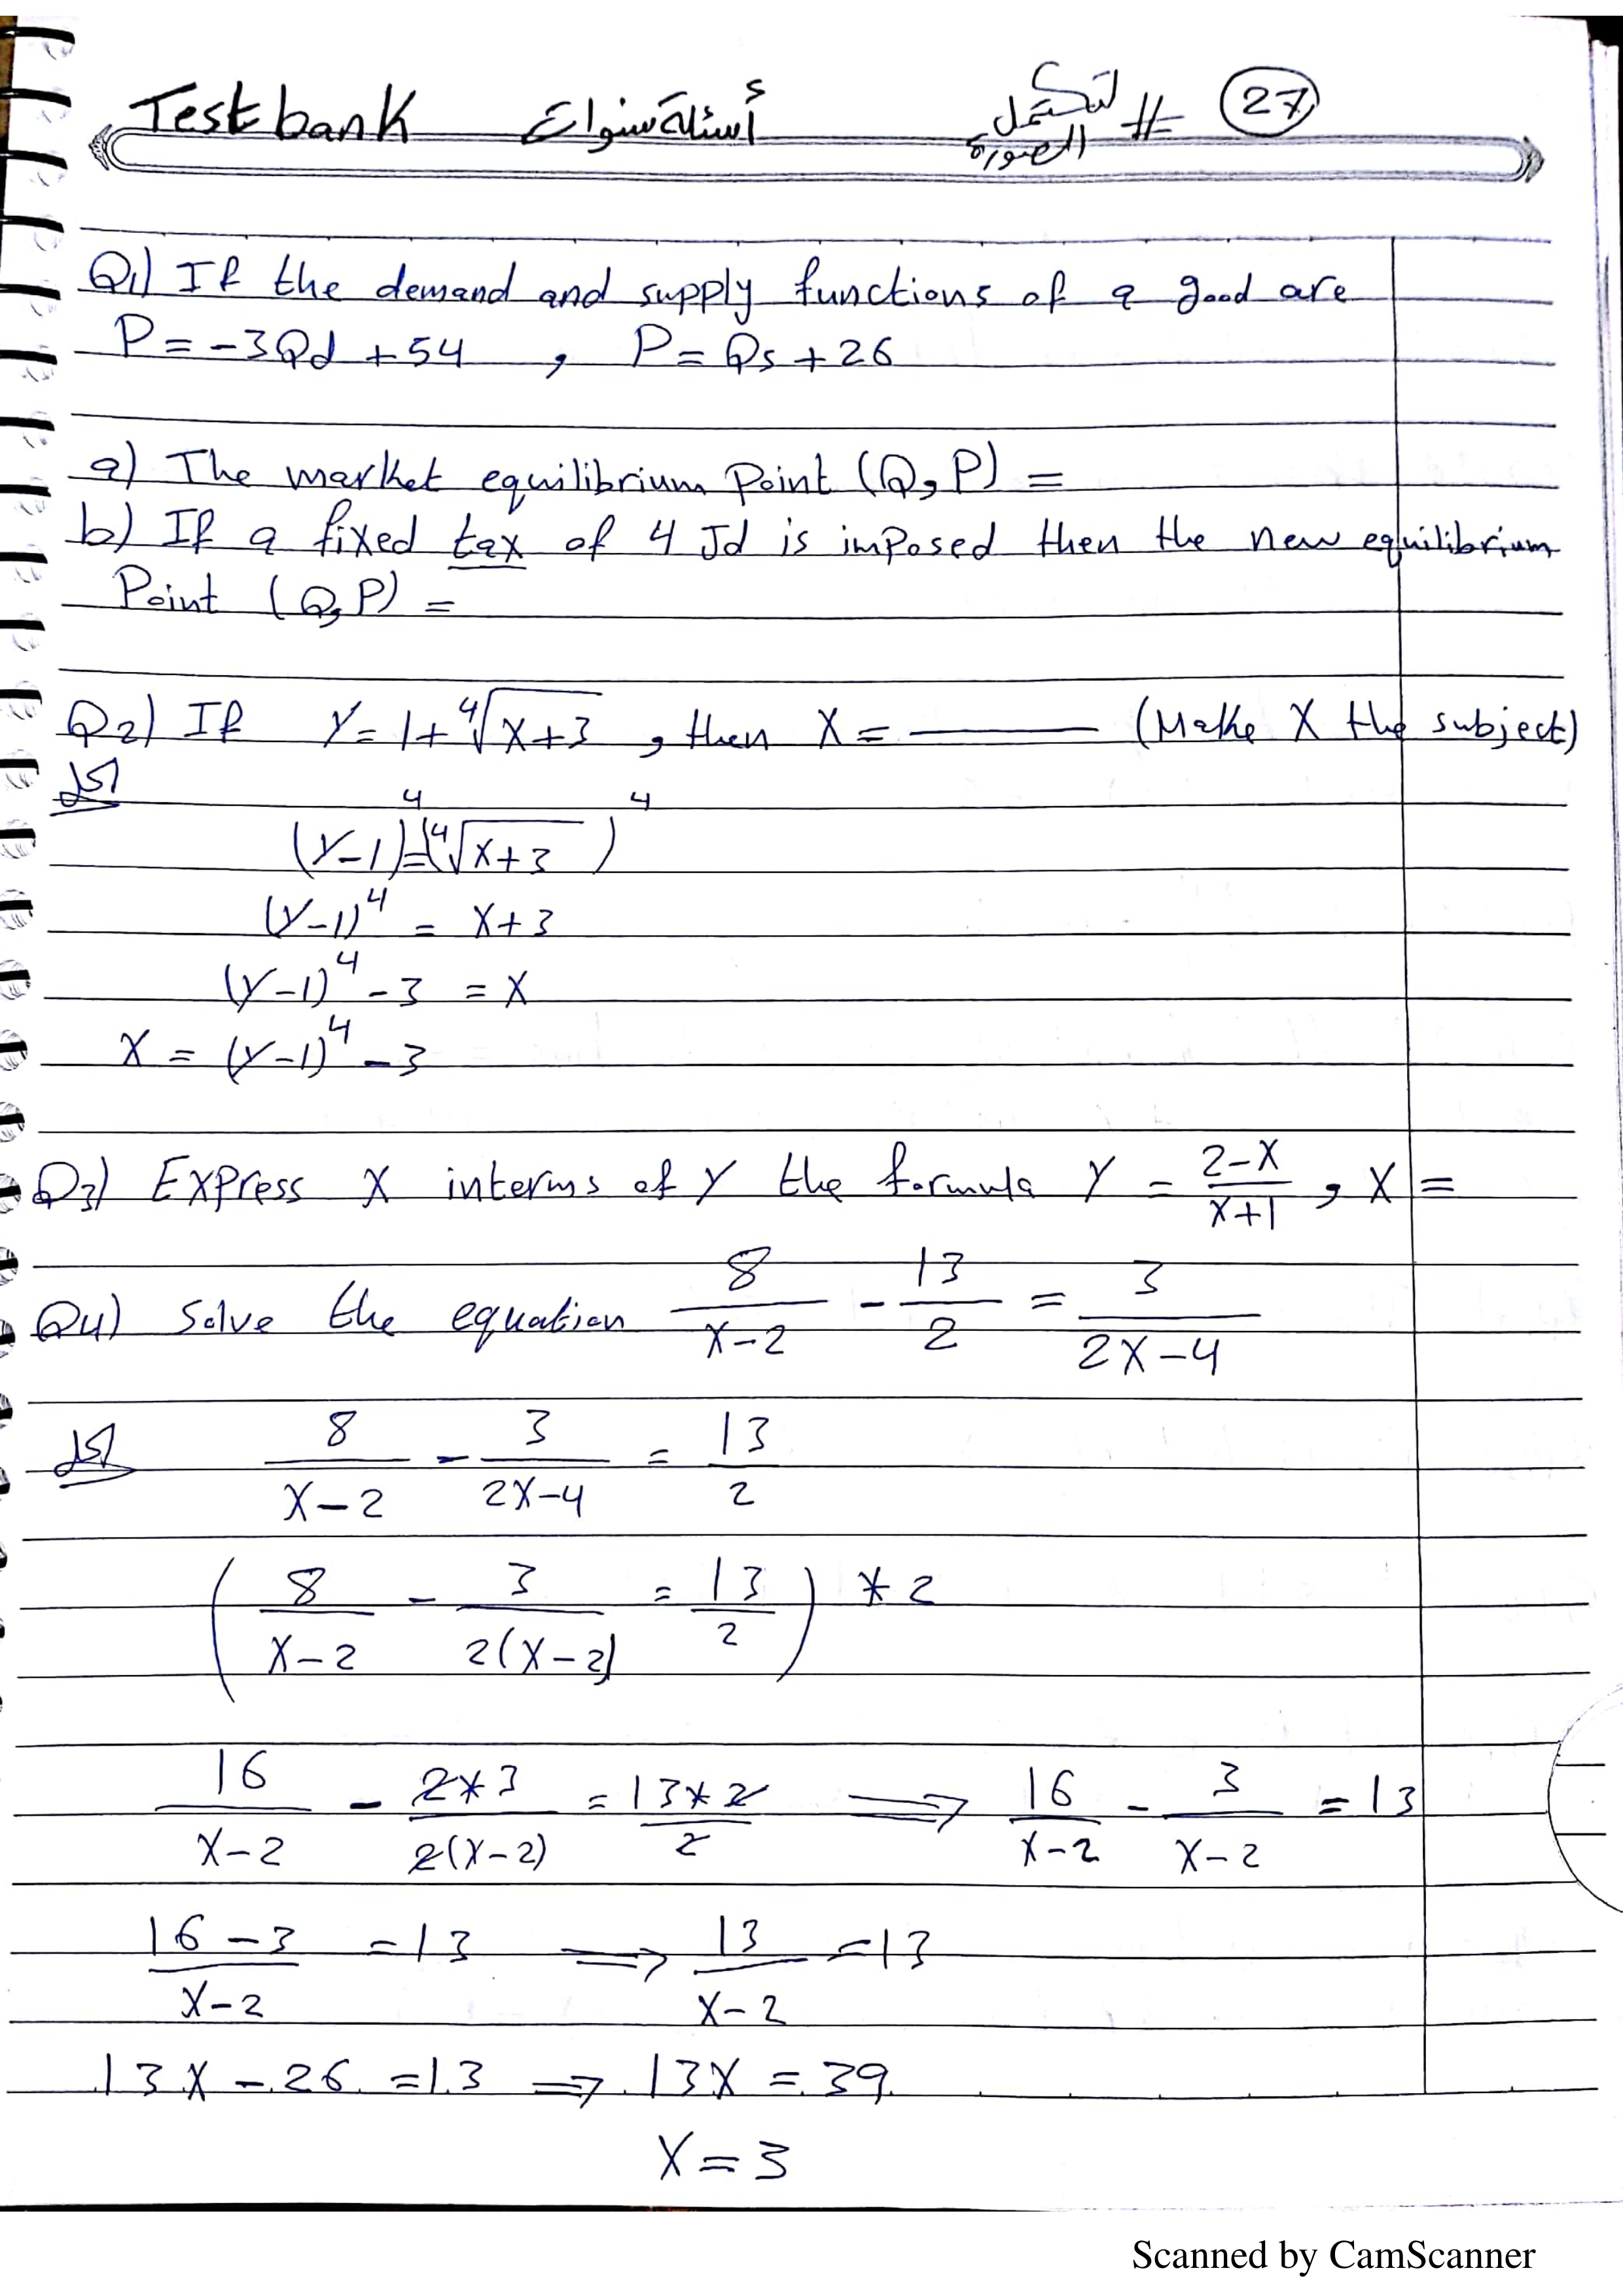 Test bank أسئلة سنوات # لتكتمل الصورة 27
Q1) If the demand and supply functions of a good are
P = -3Qd + 54 , P = Qs + 26
a) The market equilibrium Point (Q, P) =
b) If a fixed tax of 4 Jd is imposed then the new equilibrium
Point (Q, P) =
Q2) If Y = 1 + ⁴√(X+3) , then X = ——— (Make X the subject)
الحل
(Y-1)⁴ = (⁴√(X+3))⁴
(Y-1)⁴ = X+3
(Y-1)⁴ - 3 = X
X = (Y-1)⁴ - 3
Q3) Express X interms of Y the formula Y = (2-X)/(X+1) , X =
Q4) Solve the equation 8/(X-2) - 13/2 = 3/(2X-4)
الحل 8/(X-2) - 3/(2X-4) = 13/2
(8/(X-2) - 3/(2(X-2)) = 13/2) * 2
16/(X-2) - 2*3/(2(X-2)) = 13*2/2 ⟹ 16/(X-2) - 3/(X-2) = 13
(16-3)/(X-2) = 13 ⟹ 13/(X-2) = 13
13X - 26 = 13 ⟹ 13X = 39
X = 3
Scanned by CamScanner